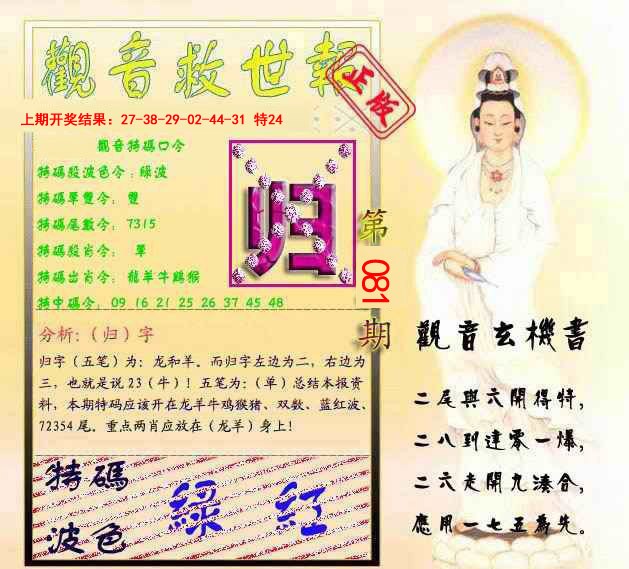 觀音救世報
正版
上期开奖结果：27-38-29-02-44-31 特24
觀音特碼口令
特碼段波色令：綠波
特碼單雙令： 雙
特碼尾數令： 7315
特碼段肖令： 單
特碼出肖令： 龍羊牛鷄猴
特中碼令： 09 16 21 25 26 37 45 48
归
第
081
期
分析：（归）字
归字（五笔）为：龙和羊。而归字左边为二，右边为
三，也就是说 23（牛）！五笔为：（单）总结本报资
料，本期特码应该开在龙羊牛鸡猴猪、双数、蓝红波、
72354 尾。重点两肖应放在（龙羊）身上！
特碼
波色
綠 紅
觀音玄機書
二尾與六開得特，
二八到達零一爆，
二六走開九湊合，
應用一七五為先。